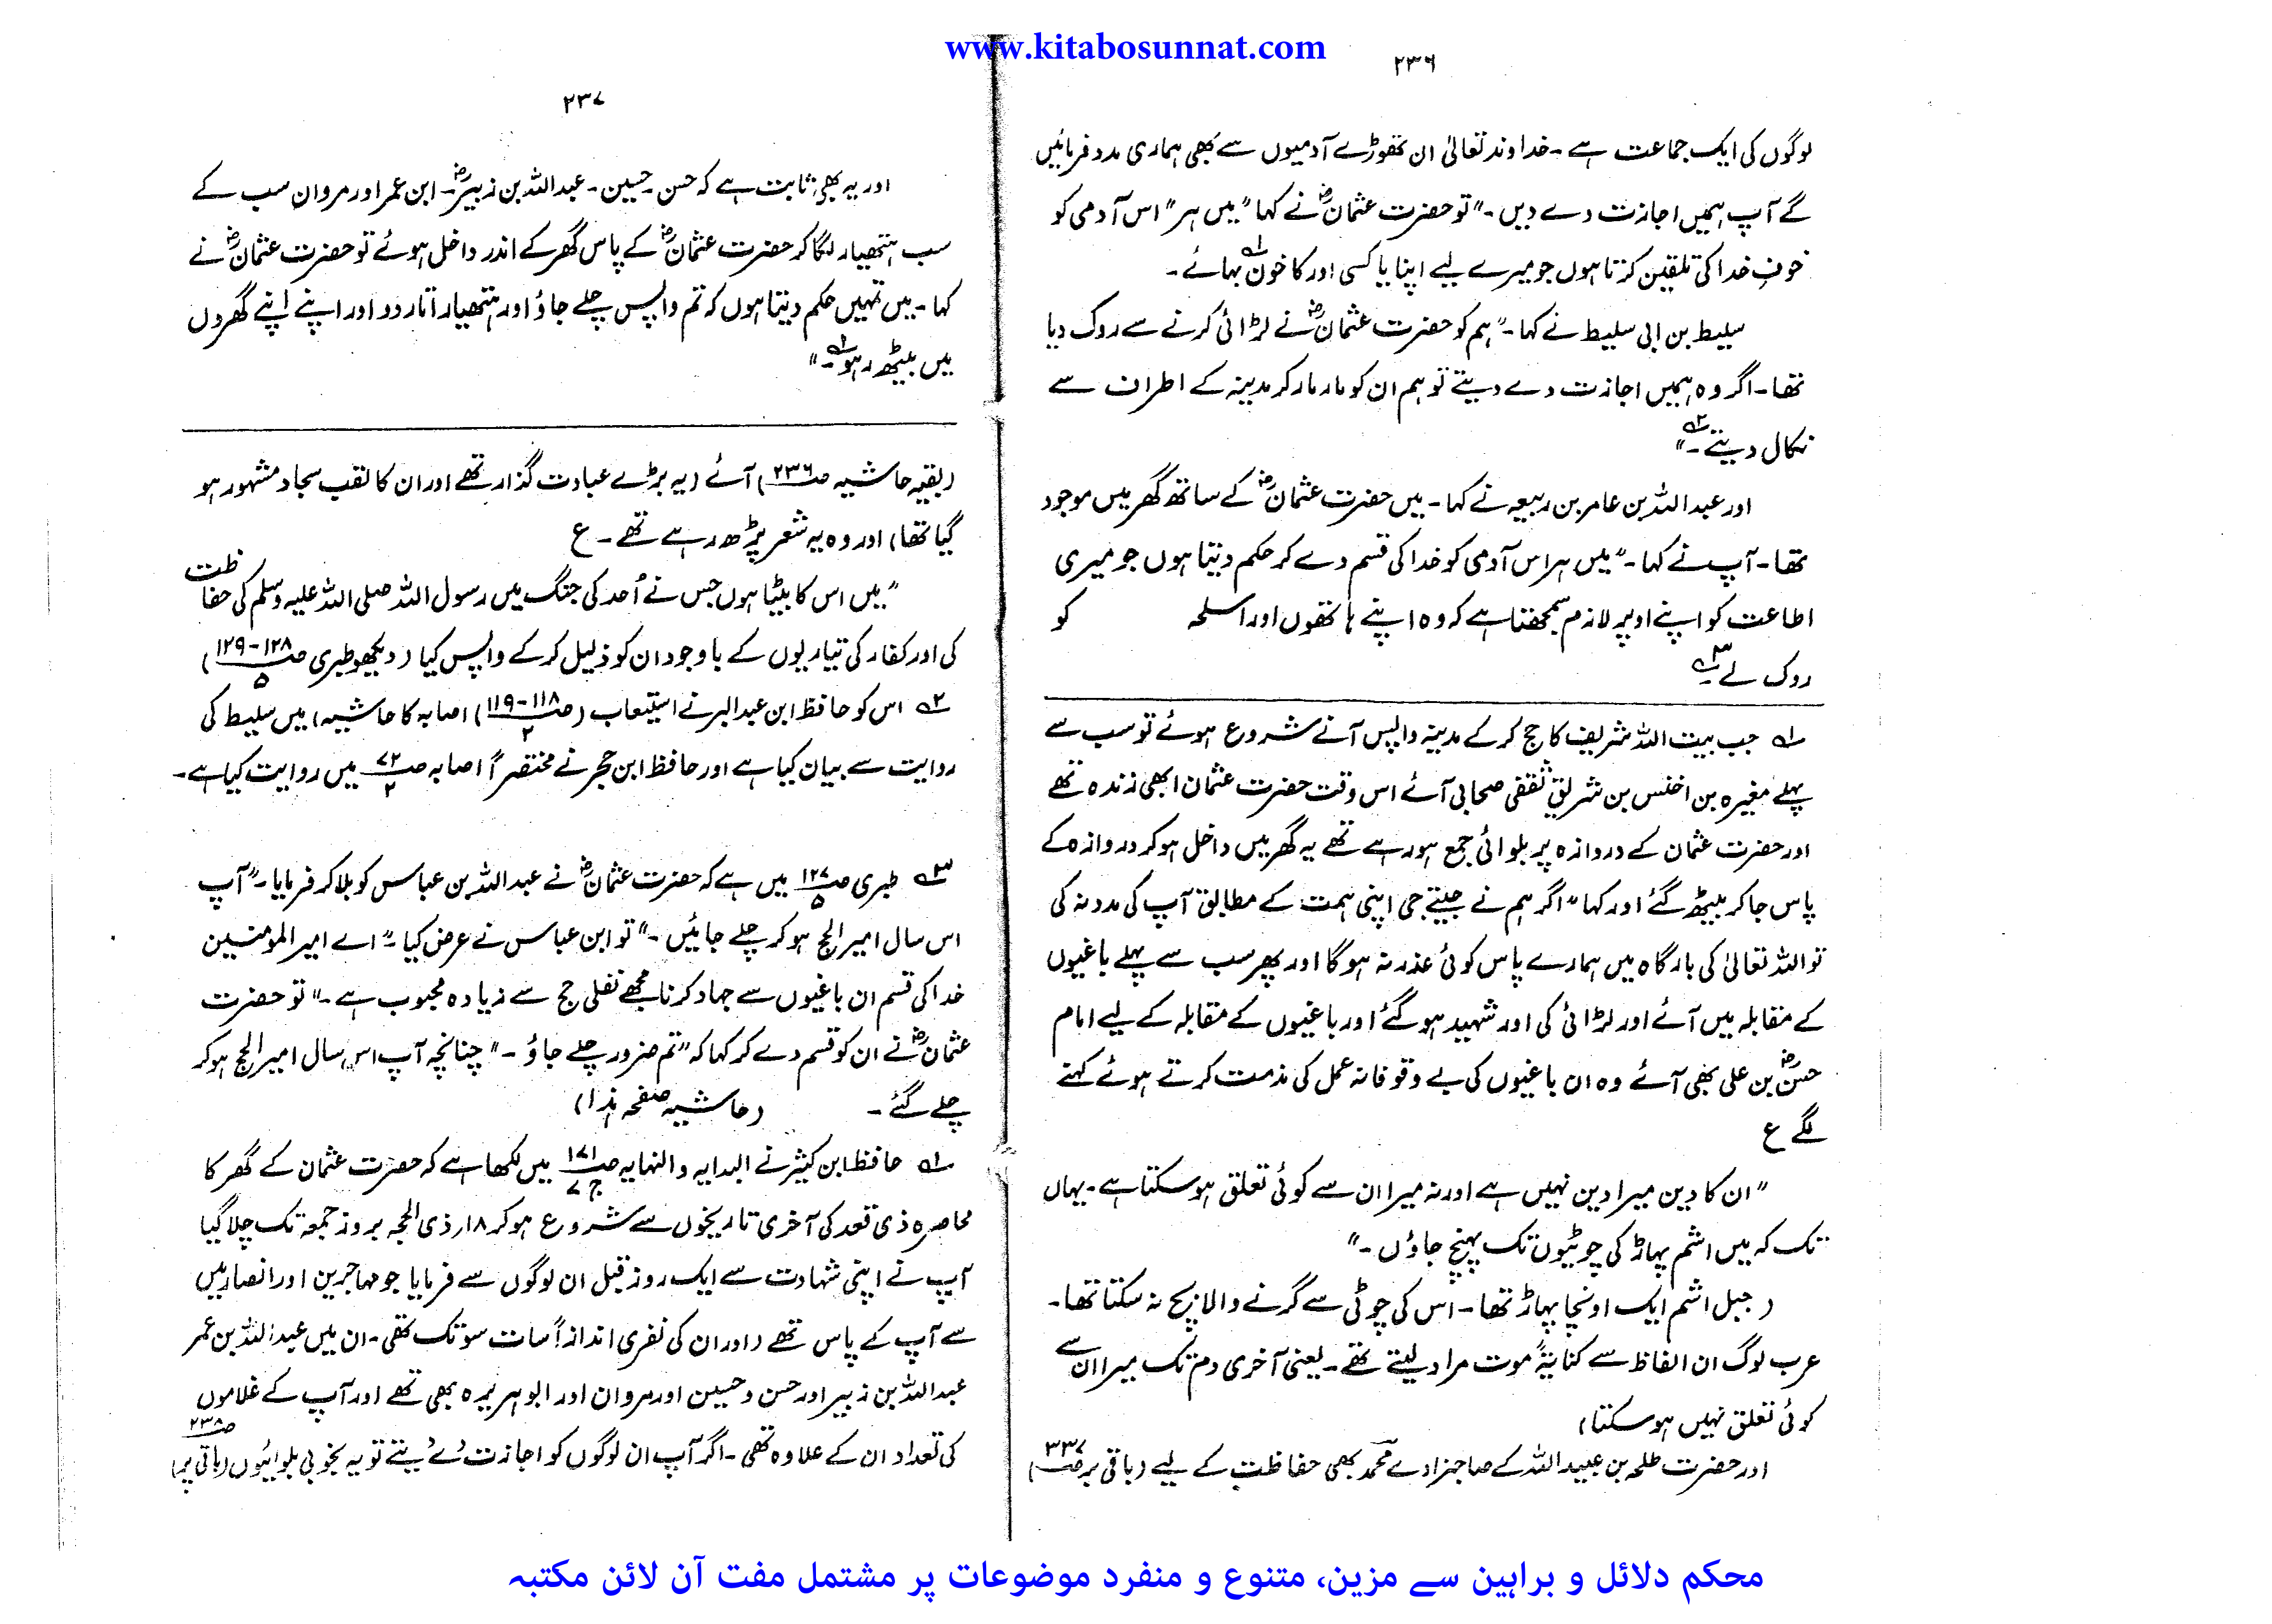 www.kitabosunnat.com
۲۳۶
لوگوں کی ایک جماعت ہے ۔ خداوند تعالیٰ ان تھوڑے آدمیوں سے بھی ہماری مدد فرمائیں
گے آپ ہمیں اجازت دے دیں ۔" تو حضرت عثمانؓ نے کہا "میں ہر" اس آدمی کو
خوفِ خدا کی تلقین کرتا ہوں جو میرے لیے اپنا یا کسی اور کا خون بہائے ۔ ۱؎
سلیط بن ابی سلیط نے کہا ۔ "ہم کو حضرت عثمانؓ نے لڑائی کرنے سے روک دیا
تھا ۔ اگر وہ ہمیں اجازت دے دیتے تو ہم ان کو مار مار کر مدینہ کے اطراف سے
نکال دیتے ۔" ۲؎
اور عبداللہ بن عامر بن ربیعہ نے کہا ۔ میں حضرت عثمانؓ کے ساتھ گھر میں موجود
تھا ۔ آپ نے کہا ۔ "میں ہر اس آدمی کو خدا کی قسم دے کر حکم دیتا ہوں جو میری
اطاعت کو اپنے اوپر لازم سمجھتا ہے کہ وہ اپنے ہاتھوں اور اسلحہ کو
روک لے ۳؎
۱؎ جب بیت اللہ شریف کا حج کر کے مدینہ واپس آنے شروع ہوئے تو سب سے
پہلے مغیرہ بن اخنس بن شریق ثقفی صحابی آئے اس وقت حضرت عثمان ابھی زندہ تھے
اور حضرت عثمان کے دروازہ پر بلوائی جمع ہو رہے تھے یہ گھر میں داخل ہو کر دروازہ کے
پاس جا کر بیٹھ گئے اور کہا "اگر ہم نے جیتے جی اپنی ہمت کے مطابق آپ کی مدد نہ کی
تو اللہ تعالیٰ کی بارگاہ میں ہمارے پاس کوئی عذر نہ ہو گا اور پھر سب سے پہلے باغیوں
کے مقابلہ میں آئے اور لڑائی کی اور شہید ہو گئے اور باغیوں کے مقابلہ کے لیے امام
حسنؓ بن علی بھی آئے وہ ان باغیوں کی بے وقوفانہ عمل کی مذمت کرتے ہوئے کہنے
لگے ع
"ان کا دین میرا دین نہیں ہے اور نہ میرا ان سے کوئی تعلق ہو سکتا ہے ۔ یہاں
تک کہ میں اشم پہاڑ کی چوٹیوں تک پہنچ جاؤں ۔"
(جبل اشم ایک اونچا پہاڑ تھا ۔ اس کی چوٹی سے گرنے والا بچ نہ سکتا تھا ۔
عرب لوگ ان الفاظ سے کنایتہً موت مراد لیتے تھے ۔ یعنی آخری دم تک میرا ان سے
کوئی تعلق نہیں ہو سکتا)
اور حضرت طلحہ بن عبید اللہ کے صاحبزادے محمد بھی حفاظت کے لیے (باقی بر صـ ۲۳۷)
۲۳۷
اور یہ بھی ثابت ہے کہ حسن ۔ حسین ۔ عبداللہ بن زبیرؓ ۔ ابن عمر اور مروان سب کے
سب ہتھیار لگا کر حضرت عثمانؓ کے پاس گھر کے اندر داخل ہوئے تو حضرت عثمانؓ نے
کہا ۔ میں تمہیں حکم دیتا ہوں کہ تم واپس چلے جاؤ اور ہتھیار اتار دو اور اپنے اپنے گھروں
میں بیٹھ رہو ۔" ۱؎
(بقیہ حاشیہ صـ ۲۳۶) آئے (یہ بڑے عبادت گذار تھے اور ان کا لقب سجاد مشہور ہو
گیا تھا) اور وہ یہ شعر پڑھ رہے تھے ۔ ع
"میں اس کا بیٹا ہوں جس نے اُحد کی جنگ میں رسول اللہ صلی اللہ علیہ وسلم کی حفاظت
کی اور کفار کی تیاریوں کے باوجود ان کو ذلیل کر کے واپس کیا (دیکھو طبری صـ ۱۲۸-۱۲۹/۵)
۲؎ اس کو حافظ ابن عبدالبر نے استیعاب (صـ ۱۱۸-۱۱۹/۲) اصابہ کا حاشیہ) میں سلیط کی
روایت سے بیان کیا ہے اور حافظ ابن حجر نے مختصراً اصابہ صـ ۷۲/۲ میں روایت کیا ہے ۔
۳؎ طبری صـ ۱۲۷/۵ میں ہے کہ حضرت عثمانؓ نے عبداللہ بن عباس کو بلا کر فرمایا ۔ "آپ
اس سال امیر الحج ہو کر چلے جائیں ۔" تو ابن عباس نے عرض کیا ۔ "اے امیر المومنین
خدا کی قسم ان باغیوں سے جہاد کرنا مجھے نفلی حج سے زیادہ محبوب ہے ۔" تو حضرت
عثمانؓ نے ان کو قسم دے کر کہا کہ "تم ضرور چلے جاؤ ۔" چنانچہ آپ اس سال امیر الحج ہو کر
چلے گئے ۔ (حاشیہ صفحہ ہذا)
۱؎ حافظ ابن کثیر نے البدایہ والنہایہ صـ ۱۸۱ ج ۷ میں لکھا ہے کہ حضرت عثمان کے گھر کا
محاصرہ ذی قعد کی آخری تاریخوں سے شروع ہو کر ۱۸ر ذی الحجہ بروز جمعہ تک چلا گیا
آپ نے اپنی شہادت سے ایک روز قبل ان لوگوں سے فرمایا جو مہاجرین اور انصار میں
سے آپ کے پاس تھے (اور ان کی نفری اندازاً سات سو تک تھی ۔ ان میں عبداللہ بن عمر
عبداللہ بن زبیر اور حسن و حسین اور مروان اور ابوہریرہ بھی تھے اور آپ کے غلاموں
کی تعداد ان کے علاوہ تھی ۔ اگر آپ ان لوگوں کو اجازت دے دیتے تو یہ بخوبی بلوائیوں (باقی بر صـ ۲۳۸)
محکم دلائل و براہین سے مزین، متنوع و منفرد موضوعات پر مشتمل مفت آن لائن مکتبہ